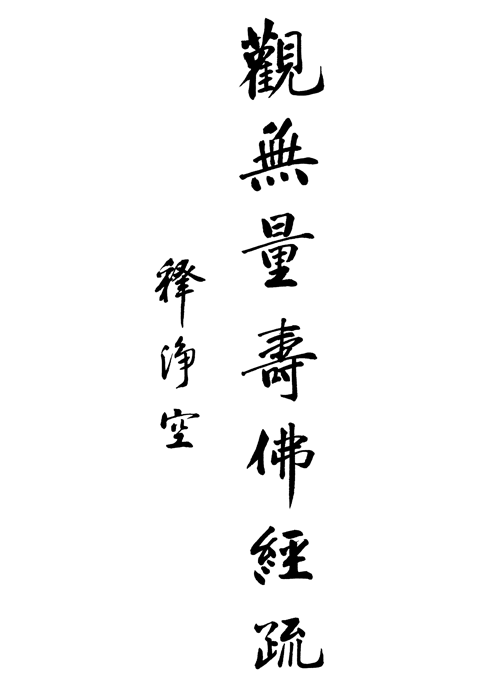 觀無量壽佛經疏
釋淨空